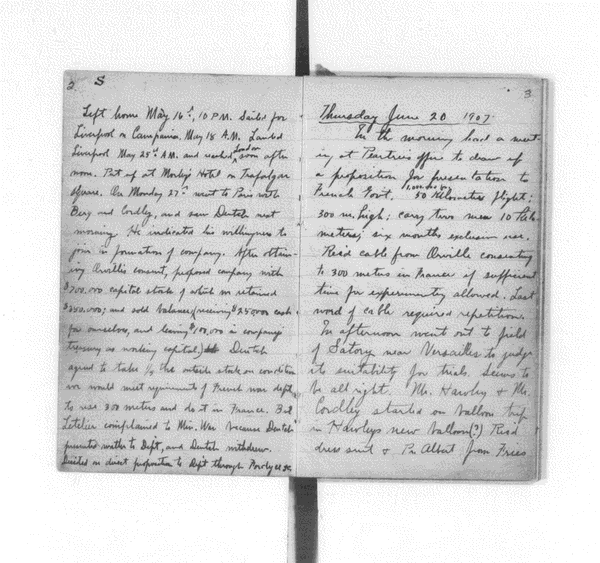 2 S
Left home May 16th, 10 P.M. Sailed for
Liverpool on Campania May 18 A.M. Landed
Liverpool May 25th A.M. and reached London soon after
noon. Put up at Morley's Hotel on Trafalgar
square. On Monday 27th went to Paris with
Berg and Cordley, and saw Deutsch next
morning. He indicated his willingness to
join in formation of company. After obtain-
ing Orville's consent, proposed company with
$700,000 capital stock of which we retained
$350,000; and sold balance (receiving $250000 cash
for ourselves, and leaving $100,000 in company
treasury as working capital.) Deutsch
agreed to take 1/5 the outside stock on condition
we would meet requirements of French war dept.
to use 300 meters and do it in France. But
Letelier complained to Min. War because Deutsch
presented matter to Dept, and Deutsch withdrew.
Decided on direct proposition to Dept through
3
Thursday June 20 1907.
In the morning had a meet-
ing at Peartree's office to draw up
a proposition for presentation to
French Govt. 1,000,000 fr; 50 Kilometer flight;
300 m. high; carry two men 10 Kilo
meters; six months exclusive use.
Recd cable from Orville consenting
to 300 meters in France if sufficient
time for experimenting allowed. Last
word of cable required repetition.
In afternoon went out to field
of Satory near Versailles to judge
its suitability for trials. Seems to
be all right. Mr. Hawley & Mr.
Cordley started on balloon trip
in Hawleys new balloon(?) Recd
dress suit & Pr. Albert from